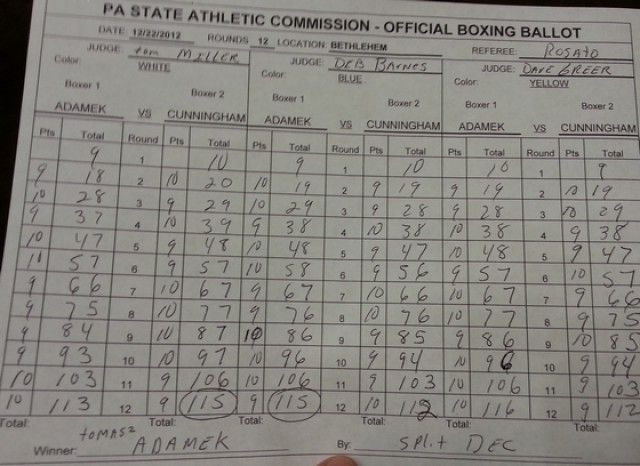 PA STATE ATHLETIC COMMISSION - OFFICIAL BOXING BALLOT
DATE 12/22/2012 ROUNDS 12 LOCATION: BETHLEHEM REFEREE: ROSATO
JUDGE: tom MILLER JUDGE: DEB BARNES JUDGE: DAVE GREER
Color: WHITE Color: BLUE Color: YELLOW
Boxer 1 Boxer 2 Boxer 1 Boxer 2 Boxer 1 Boxer 2
ADAMEK VS CUNNINGHAM ADAMEK VS CUNNINGHAM ADAMEK VS CUNNINGHAM
Pts Total Round Pts Total Pts Total Round Pts Total Pts Total Round Pts Total
9 1 10 9 1 10 10 1 9
9 18 2 10 20 10 19 2 9 19 9 19 2 10 19
10 28 3 9 29 10 29 3 9 28 9 28 3 10 29
9 37 4 10 39 9 38 4 10 38 10 38 4 9 38
10 47 5 9 48 10 48 5 9 47 10 48 5 9 47
10 57 6 9 57 10 58 6 9 56 9 57 6 10 57
9 66 7 10 67 9 67 7 10 66 10 67 7 9 66
9 75 8 10 77 9 76 8 10 76 10 77 8 9 75
9 84 9 10 87 10 86 9 9 85 9 86 9 10 85
9 93 10 10 97 10 96 10 9 94 10 96 10 9 94
10 103 11 9 106 10 106 11 9 103 10 106 11 9 103
10 113 12 9 115 9 115 12 10 112 10 116 12 9 112
Total: Total: Total: Total: Total: Total:
Winner: tomasz ADAMEK By: SPLit DEC